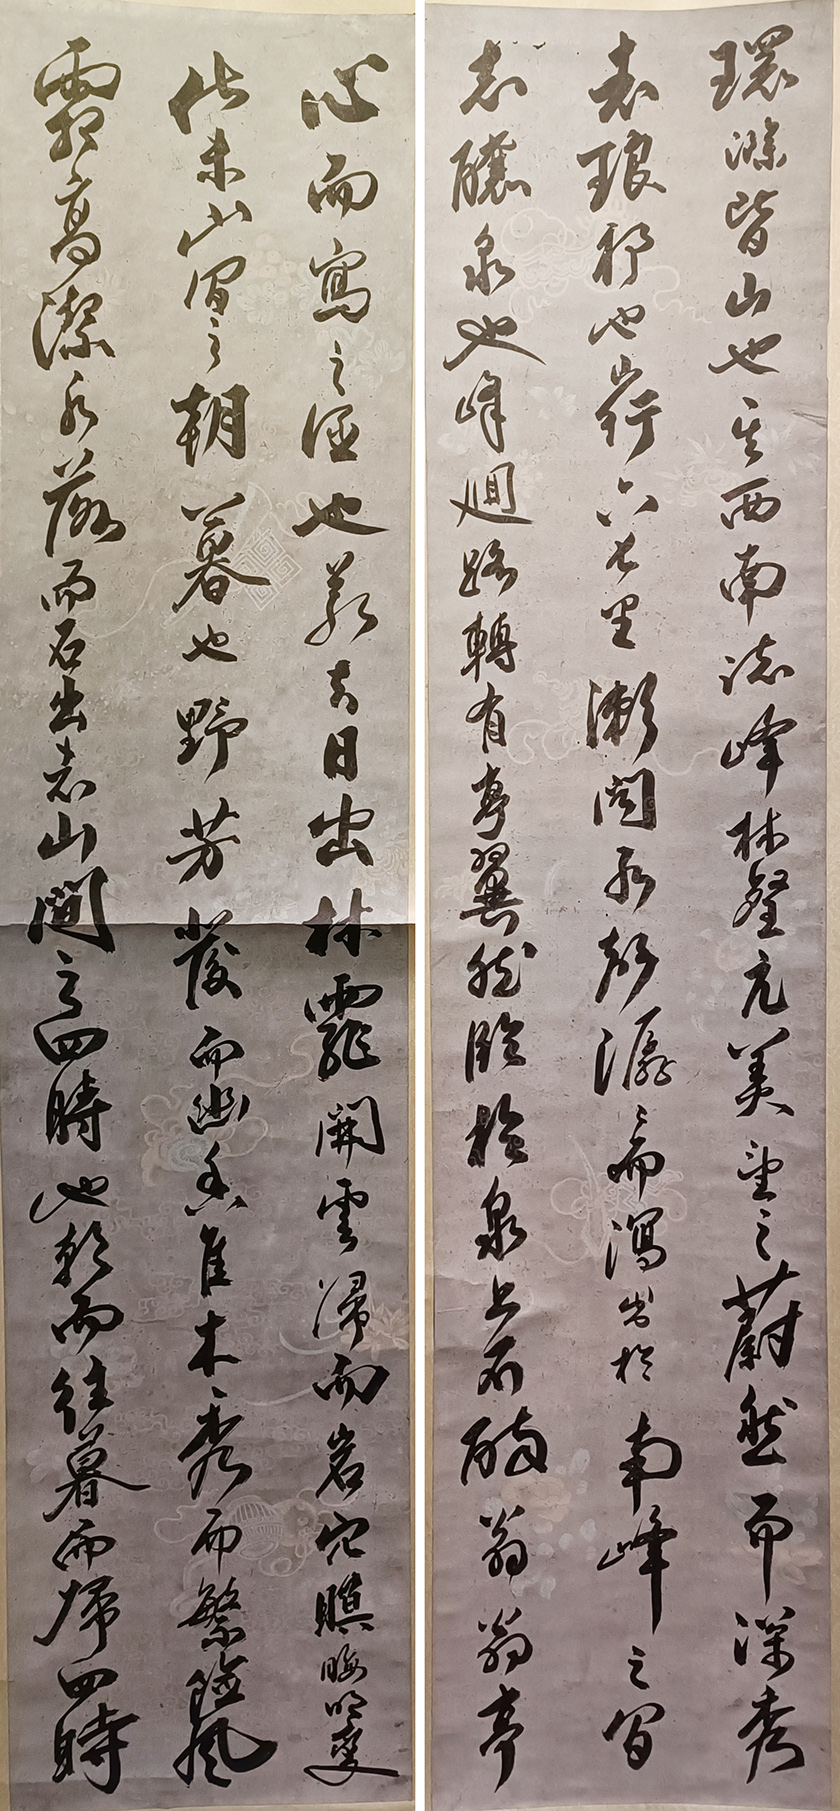 環滁皆山也其西南諸峰林壑尤美望之蔚然而深秀
者琅邪也山行六七里漸聞水聲潺〻而瀉出於南峰之間
者釀泉也峰迴路轉有亭翼然臨於泉上者醉翁翁亭
心而寓之酒也若夫日出林霏開雲歸而岩穴暝晦明變
化者山間之朝暮也野芳發而幽香佳木秀而繁陰風
霜高潔水落而石出者山間之四時也朝而往暮而歸四時